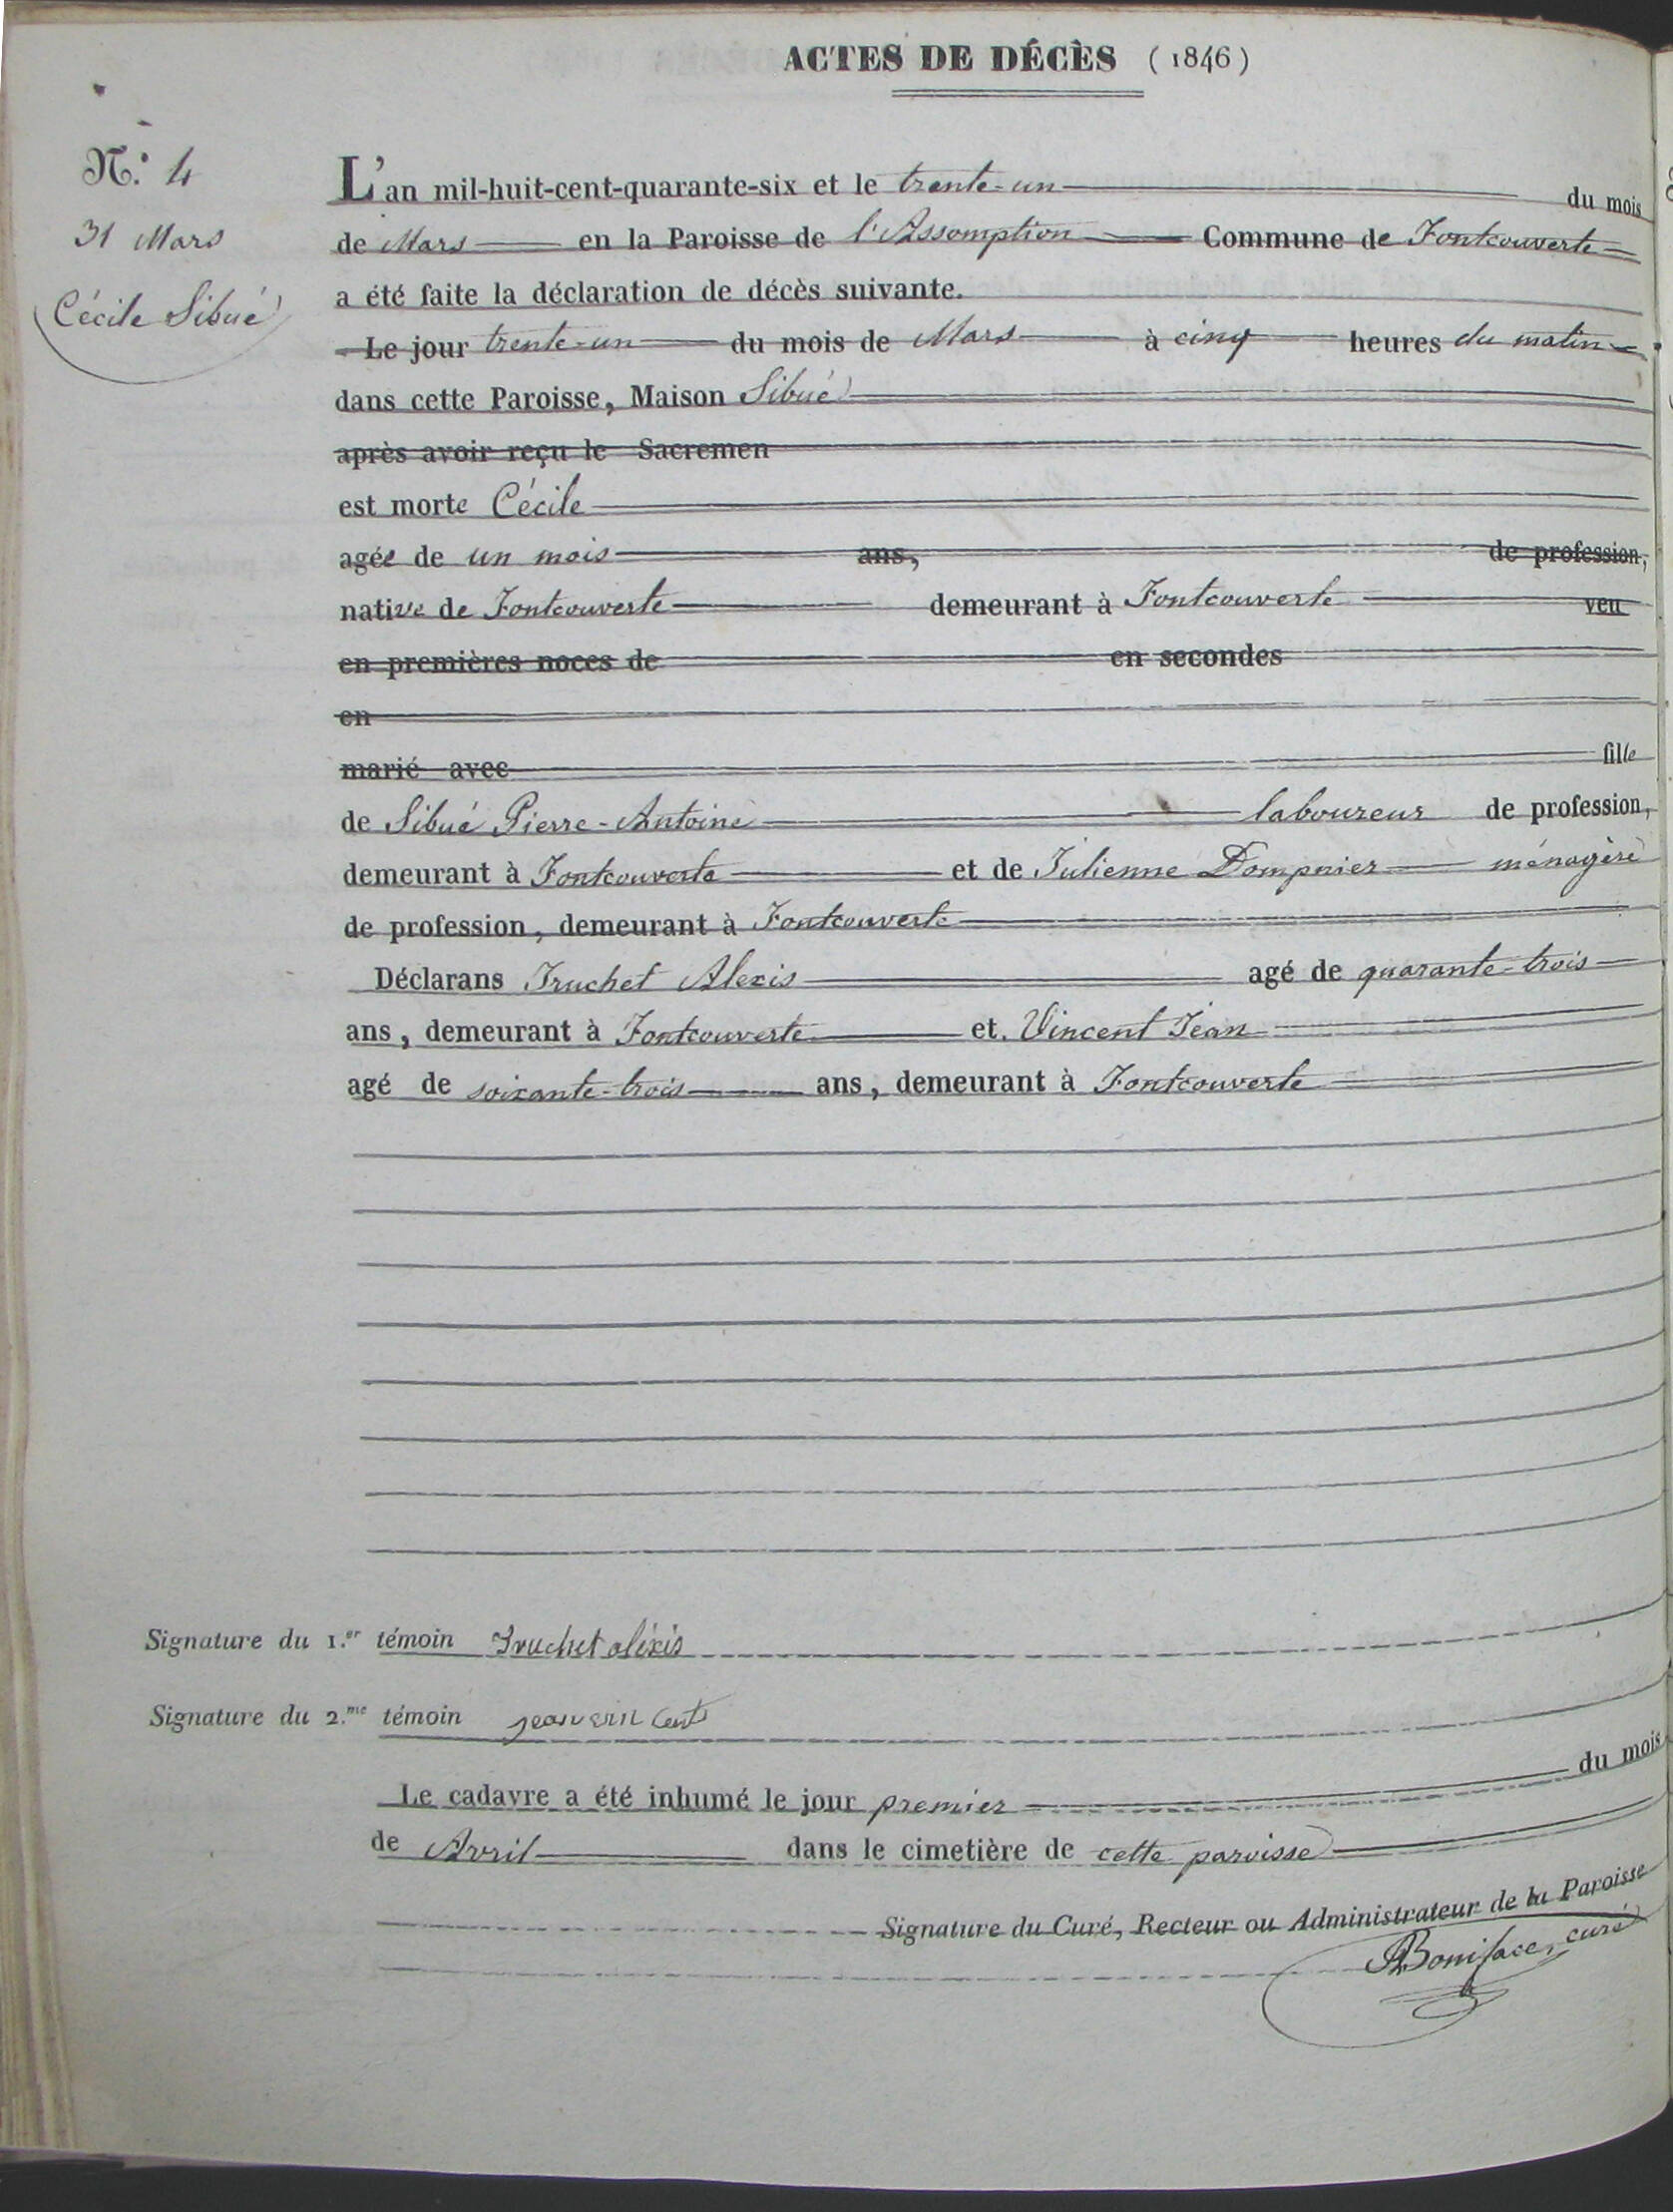 ACTES DE DÉCÈS (1846)
N.° 4
31 Mars
Cécile Sibué
L'an mil-huit-cent-quarante-six et le trente-un du mois
de Mars en la Paroisse de l'Assomption Commune de Fontcouverte
a été faite la déclaration de décès suivante.
Le jour trente-un du mois de Mars à cinq heures du matin
dans cette Paroisse, Maison Sibué
après avoir reçu le Sacremen
est morte Cécile
agée de un mois ans, de profession,
native de Fontcouverte demeurant à Fontcouverte veu
en premières noces de en secondes
en
marié avec fille
de Sibué Pierre-Antoine laboureur de profession,
demeurant à Fontcouverte et de Julienne Dompnier ménagère
de profession, demeurant à Fontcouverte
Déclarans Truchet Alexis agé de quarante-trois
ans, demeurant à Fontcouverte et Vincent Jean
agé de soixante-trois ans, demeurant à Fontcouverte
Signature du 1.er témoin Truchet aléxis
Signature du 2.me témoin jean vin cent
Le cadavre a été inhumé le jour premier du mois
de Avril dans le cimetière de cette paroisse
Signature du Curé, Recteur ou Administrateur de la Paroisse
Boniface, curé